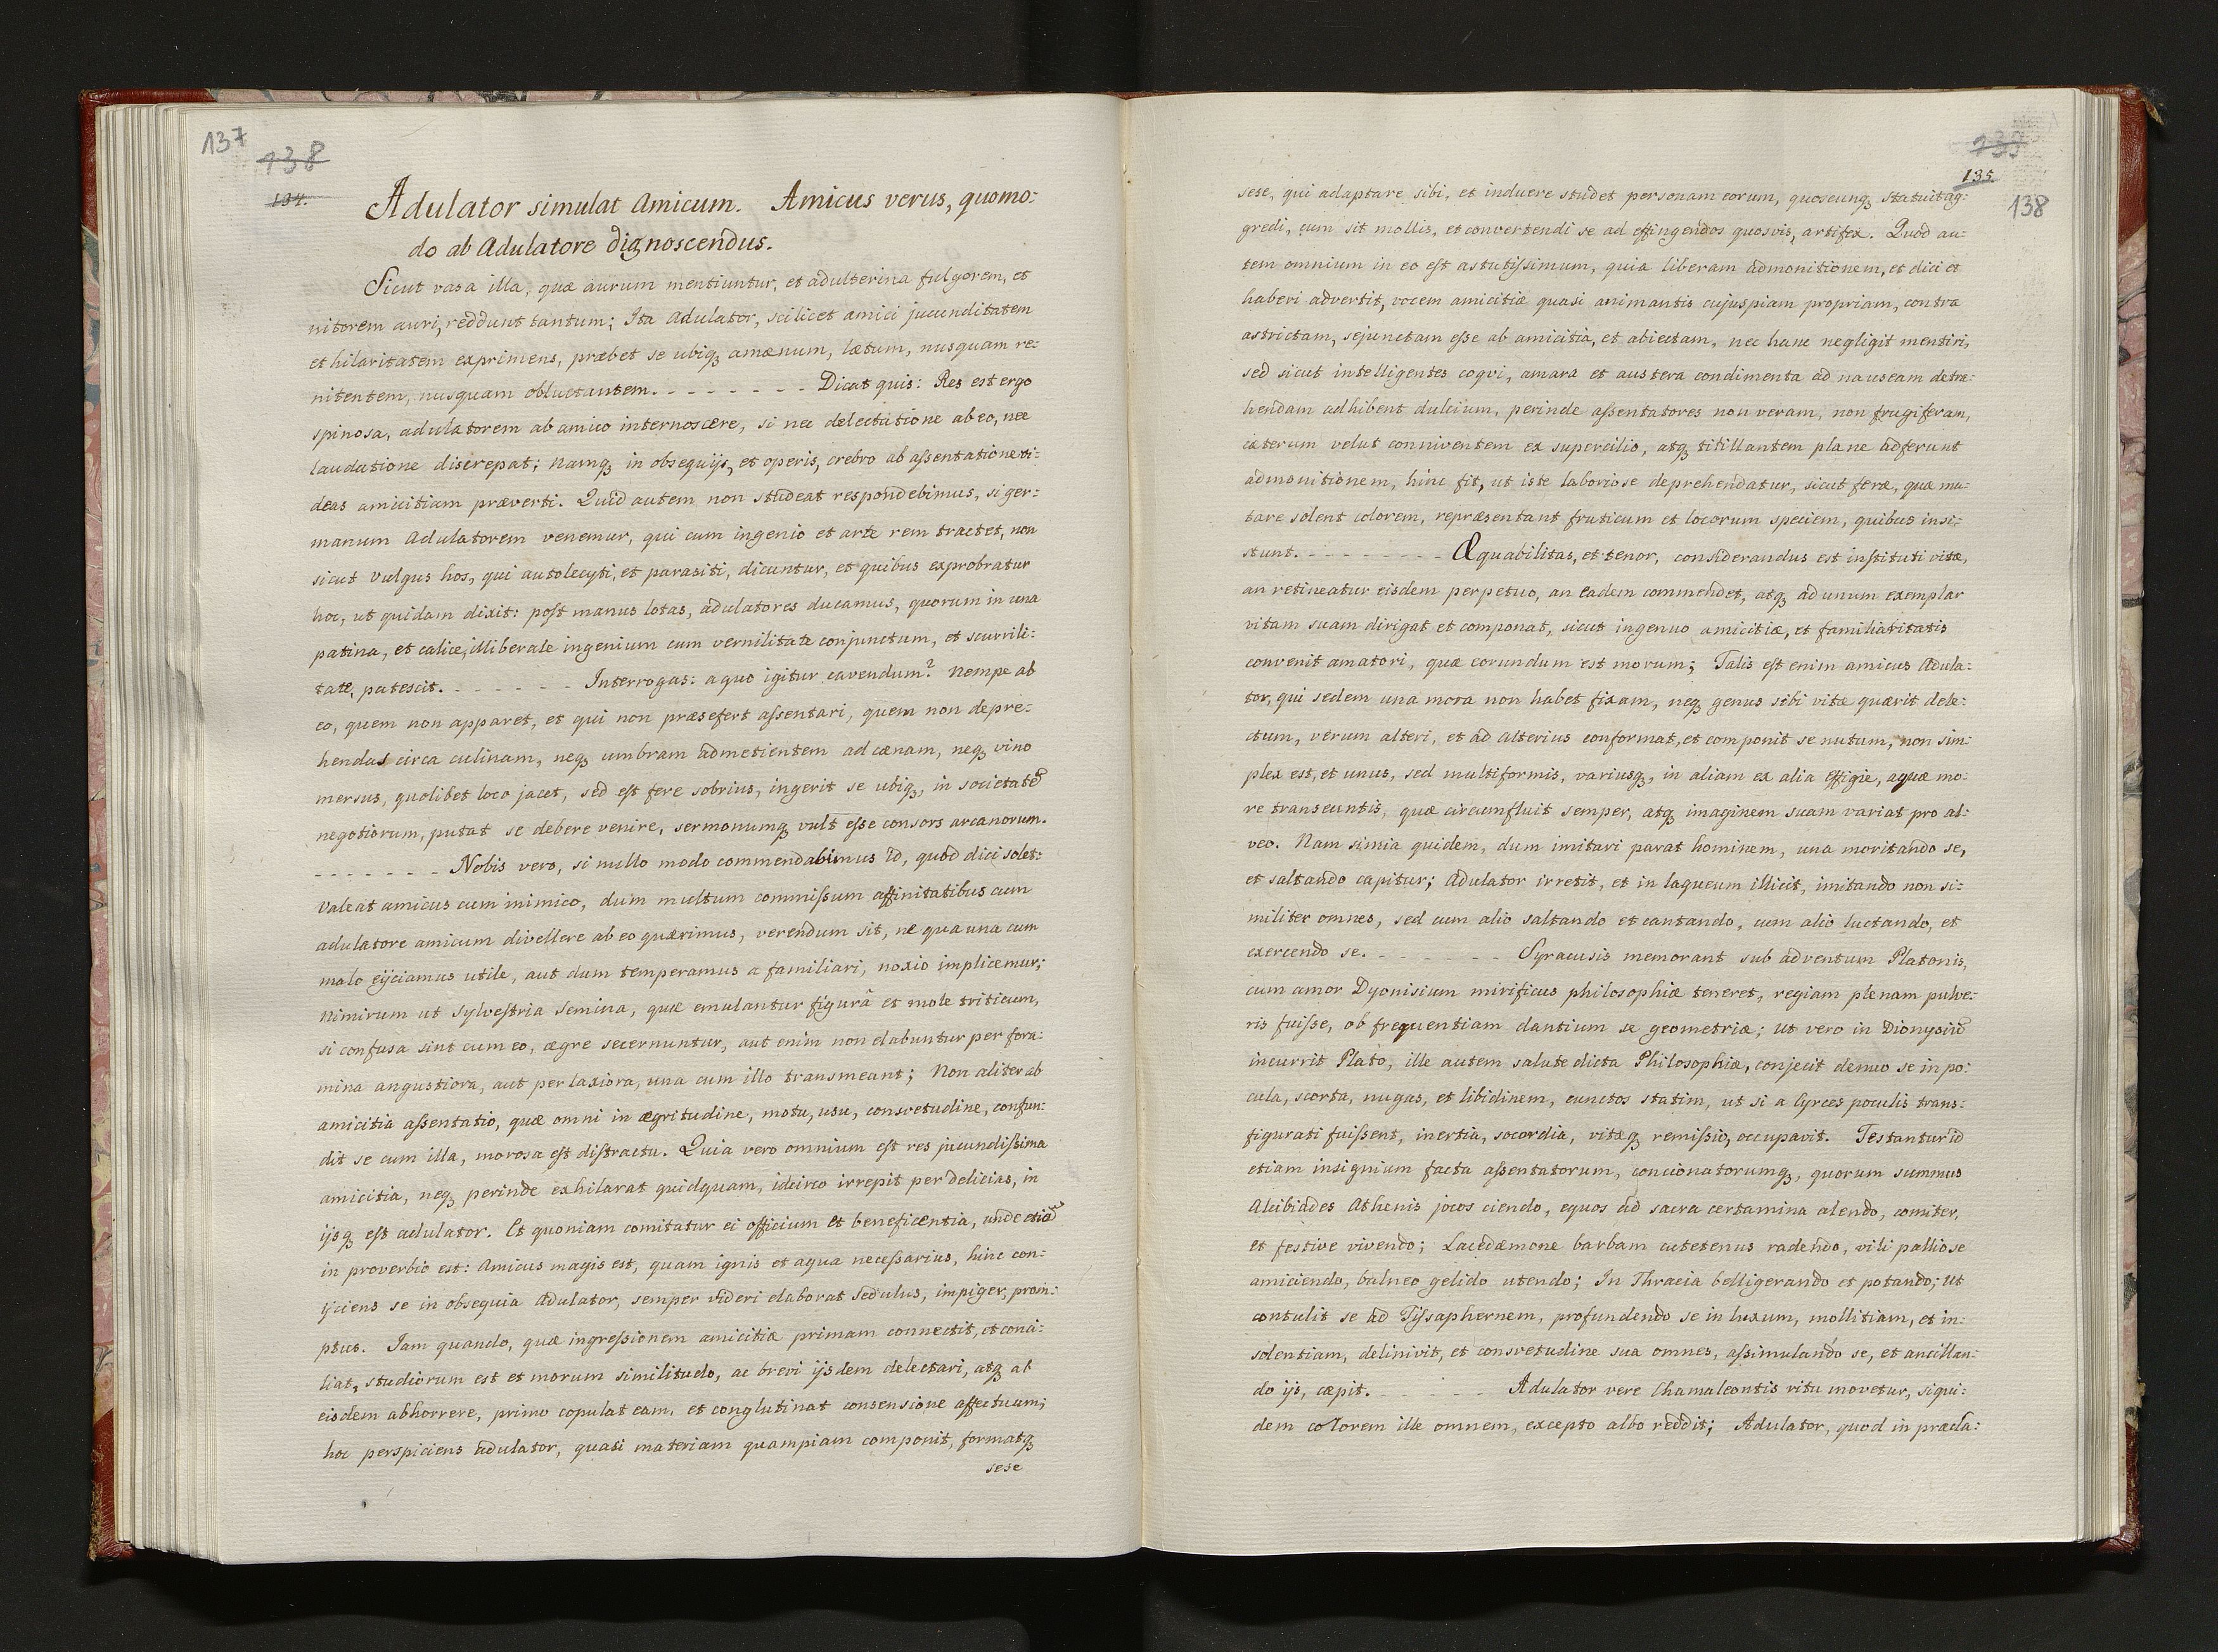 137
138
134.
Adulator simulat Amicum. Amicus verus, quomo:
do ab Adulatore dignoscendus.
Sicut vasa illa, quæ aurum mentiuntur, et adulterina fulgorem, et
nitorem auri, reddunt tantum; Ita Adulator, scilicet amici jucunditatem
et hilaritatem exprimens, præbet se ubiq; amænum, lætum, nusquam re:
nitentem, nusquam obluctantem. - - - - - - - - Dicat quis: Res est ergo
spinosa, adulatorem ab amico internoscere, si nec delectatione ab eo, nec
laudatione discrepat; namq; in obsequijs, et operis, crebro ab assentatione vi:
deas amicitiam præverti. Quid autem non studeat respondebimus, si ger:
manum Adulatorem venemur, qui cum ingenio et arte rem tractet, non
sicut vulgus hos, qui autolecyti, et parasiti, dicuntur, et quibus exprobratur
hoc, ut quidam dixit: post manus lotas, adulatores ducamus, quorum in una
patina, et calice, illiberale ingenium cum vernilitate conjunctum, et scurrili:
tate, patescit. - - - - - - - Interrogas: a quo igitur cavendum? Nempe ab
eo, quem non apparet, et qui non præsefert assentari, quem non depre:
hendas circa culinam, neq; umbram admetientem ad cænam, neq; vino
mersus, quolibet loco jacet, sed est fere sobrius, ingerit se ubiq;, in societatē
negotiorum, putat se debere venire, sermonumq; vult esse consors arcanorum.
- - - - - - - Nobis vero, si nullo modo commendabimus id, quod dici solet:
Valeat amicus cum inimico, dum multum commissum affinitatibus cum
adulatore amicum divellere ab eo quærimus, verendum sit, ne qua una cum
malo ejiciamus utile, aut dum temperamus a familiari, noxio implicemur;
Nimirum ut sylvestria semina, quæ emulantur figurâ et mole triticum,
si confusa sint cum eo, ægre secernuntur, aut enim non elabuntur per fora:
mina angustiora, aut per laxiora, una cum illo transmeant; Non aliter ab
amicitia assentatio, quæ omni in ægritudine, motu, usu, consvetudine, confun:
dit se cum illa, morosa est distractu. Quia vero omnium est res jucundissima
amicitia, neq; perinde exhilarat quidquam, idcirco irrepit per delicias, in
ijsq; est adulator. Et quoniam comitatur ei officium et beneficentia, unde etiā
in proverbio est: Amicus magis est, quam ignis et aqua necessarius, hinc con:
ijciens se in obsequia Adulator, semper videri elaborat sedulus, impiger, prom:
ptus. Jam quando, quæ ingressionem amicitiæ primam connectit, et conci:
liat, studiorum est et morum similitudo, ac brevi ijsdem delectari, atq; ab
eisdem abhorrere, primo copulat eam, et conglutinat consensione affectuum;
hoc perspiciens adulator, quasi materiam quampiam componit, formatq;
sese
135.
138
sese, qui adaptare sibi, et induere studet personam eorum, quoscunq; statuit ag:
gredi, cum sit mollis, et convertendi se ad effingendos quosvis, artifex. Quod au:
tem omnium in eo est astutissimum, quia liberam admonitionem, et dici et
haberi advertit, vocem amicitiæ quasi animantis cujuspiam propriam, contra
astrictam, sejunctam esse ab amicitia, et abiectam, nec hanc negligit mentiri,
sed sicut intelligentes coqvi, amara et austera condimenta ad nauseam detra:
hendam adhibent dulcium, perinde assentatores non veram, non frugiferam,
cæterum velut conniventem ex supercilio, atq; titillantem plane adferunt
admonitionem, hinc fit, ut iste laboriose deprehendatur, sicut feræ, quæ mu:
tare solent colorem, repræsentant fruticum et locorum speciem, quibus insi:
stunt. - - - - - - - - - Æquabilitas, et tenor, considerandus est instituti vitæ,
an retineatur eisdem perpetuo, an eadem commendet, atq; ad unum exemplar
vitam suam dirigat et componat, sicut ingenuo amicitiæ, et familiaritatis
convenit amatori, quæ eorundum est morum; Talis est enim amicus Adula:
tor, qui sedem una mora non habet fixam, neq; genus sibi vitæ quærit dele:
ctum, verum alteri, et ad alterius conformat, et componit se nutum, non sim:
plex est, et unus, sed multiformis, variusq;, in aliam ex alia effigie, aquæ mo:
re transeuntis, quæ circumfluit semper, atq; imaginem suam variat pro al:
veo. Nam simia quidem, dum imitari parat hominem, una moritando se,
et saltando capitur; Adulator irretit, et in laqueum illicit, imitando non si:
militer omnes, sed cum alio saltando et cantando, cum alio luctando, et
exercendo se. - - - - - - - Syracusis memorant sub adventum Platonis,
cum amor Dyonisium mirificus philosophiæ teneret, regiam plenam pulve:
ris fuisse, ob frequentiam dantium se geometriæ; ut vero in Dionysiū
incurrit Plato, ille autem salute dicta Philosophiæ, conjecit denuo se in po:
cula, scorta, nugas, et libidinem, cunctos statim, ut si a Cyrces poculis trans:
figurati fuissent, inertia, socordia, vitæq; remissio, occupavit. Testantur id
etiam insignium facta assentatorum, concionatorumq;, quorum summus
Alcibiades Athenis jocos ciendo, equos ad sacra certamina alendo, comiter,
et festive vivendo; Lacedæmone barbam cutetenus radendo, vili pallio se
amiciendo, balneo gelido utendo; In Thracia belligerando et potando; ut
contulit se ad Tissaphernem, profundendo se in luxum, mollitiam, et in:
solentiam, delinivit, et consvetudine sua omnes, assimulando se, et ancillan:
do ijs, cæpit. - - - - - - Adulator vere Chamaleontis ritu movetur, siqui:
dem colorem ille omnem, excepto albo reddit; Adulator, quod in præcla: